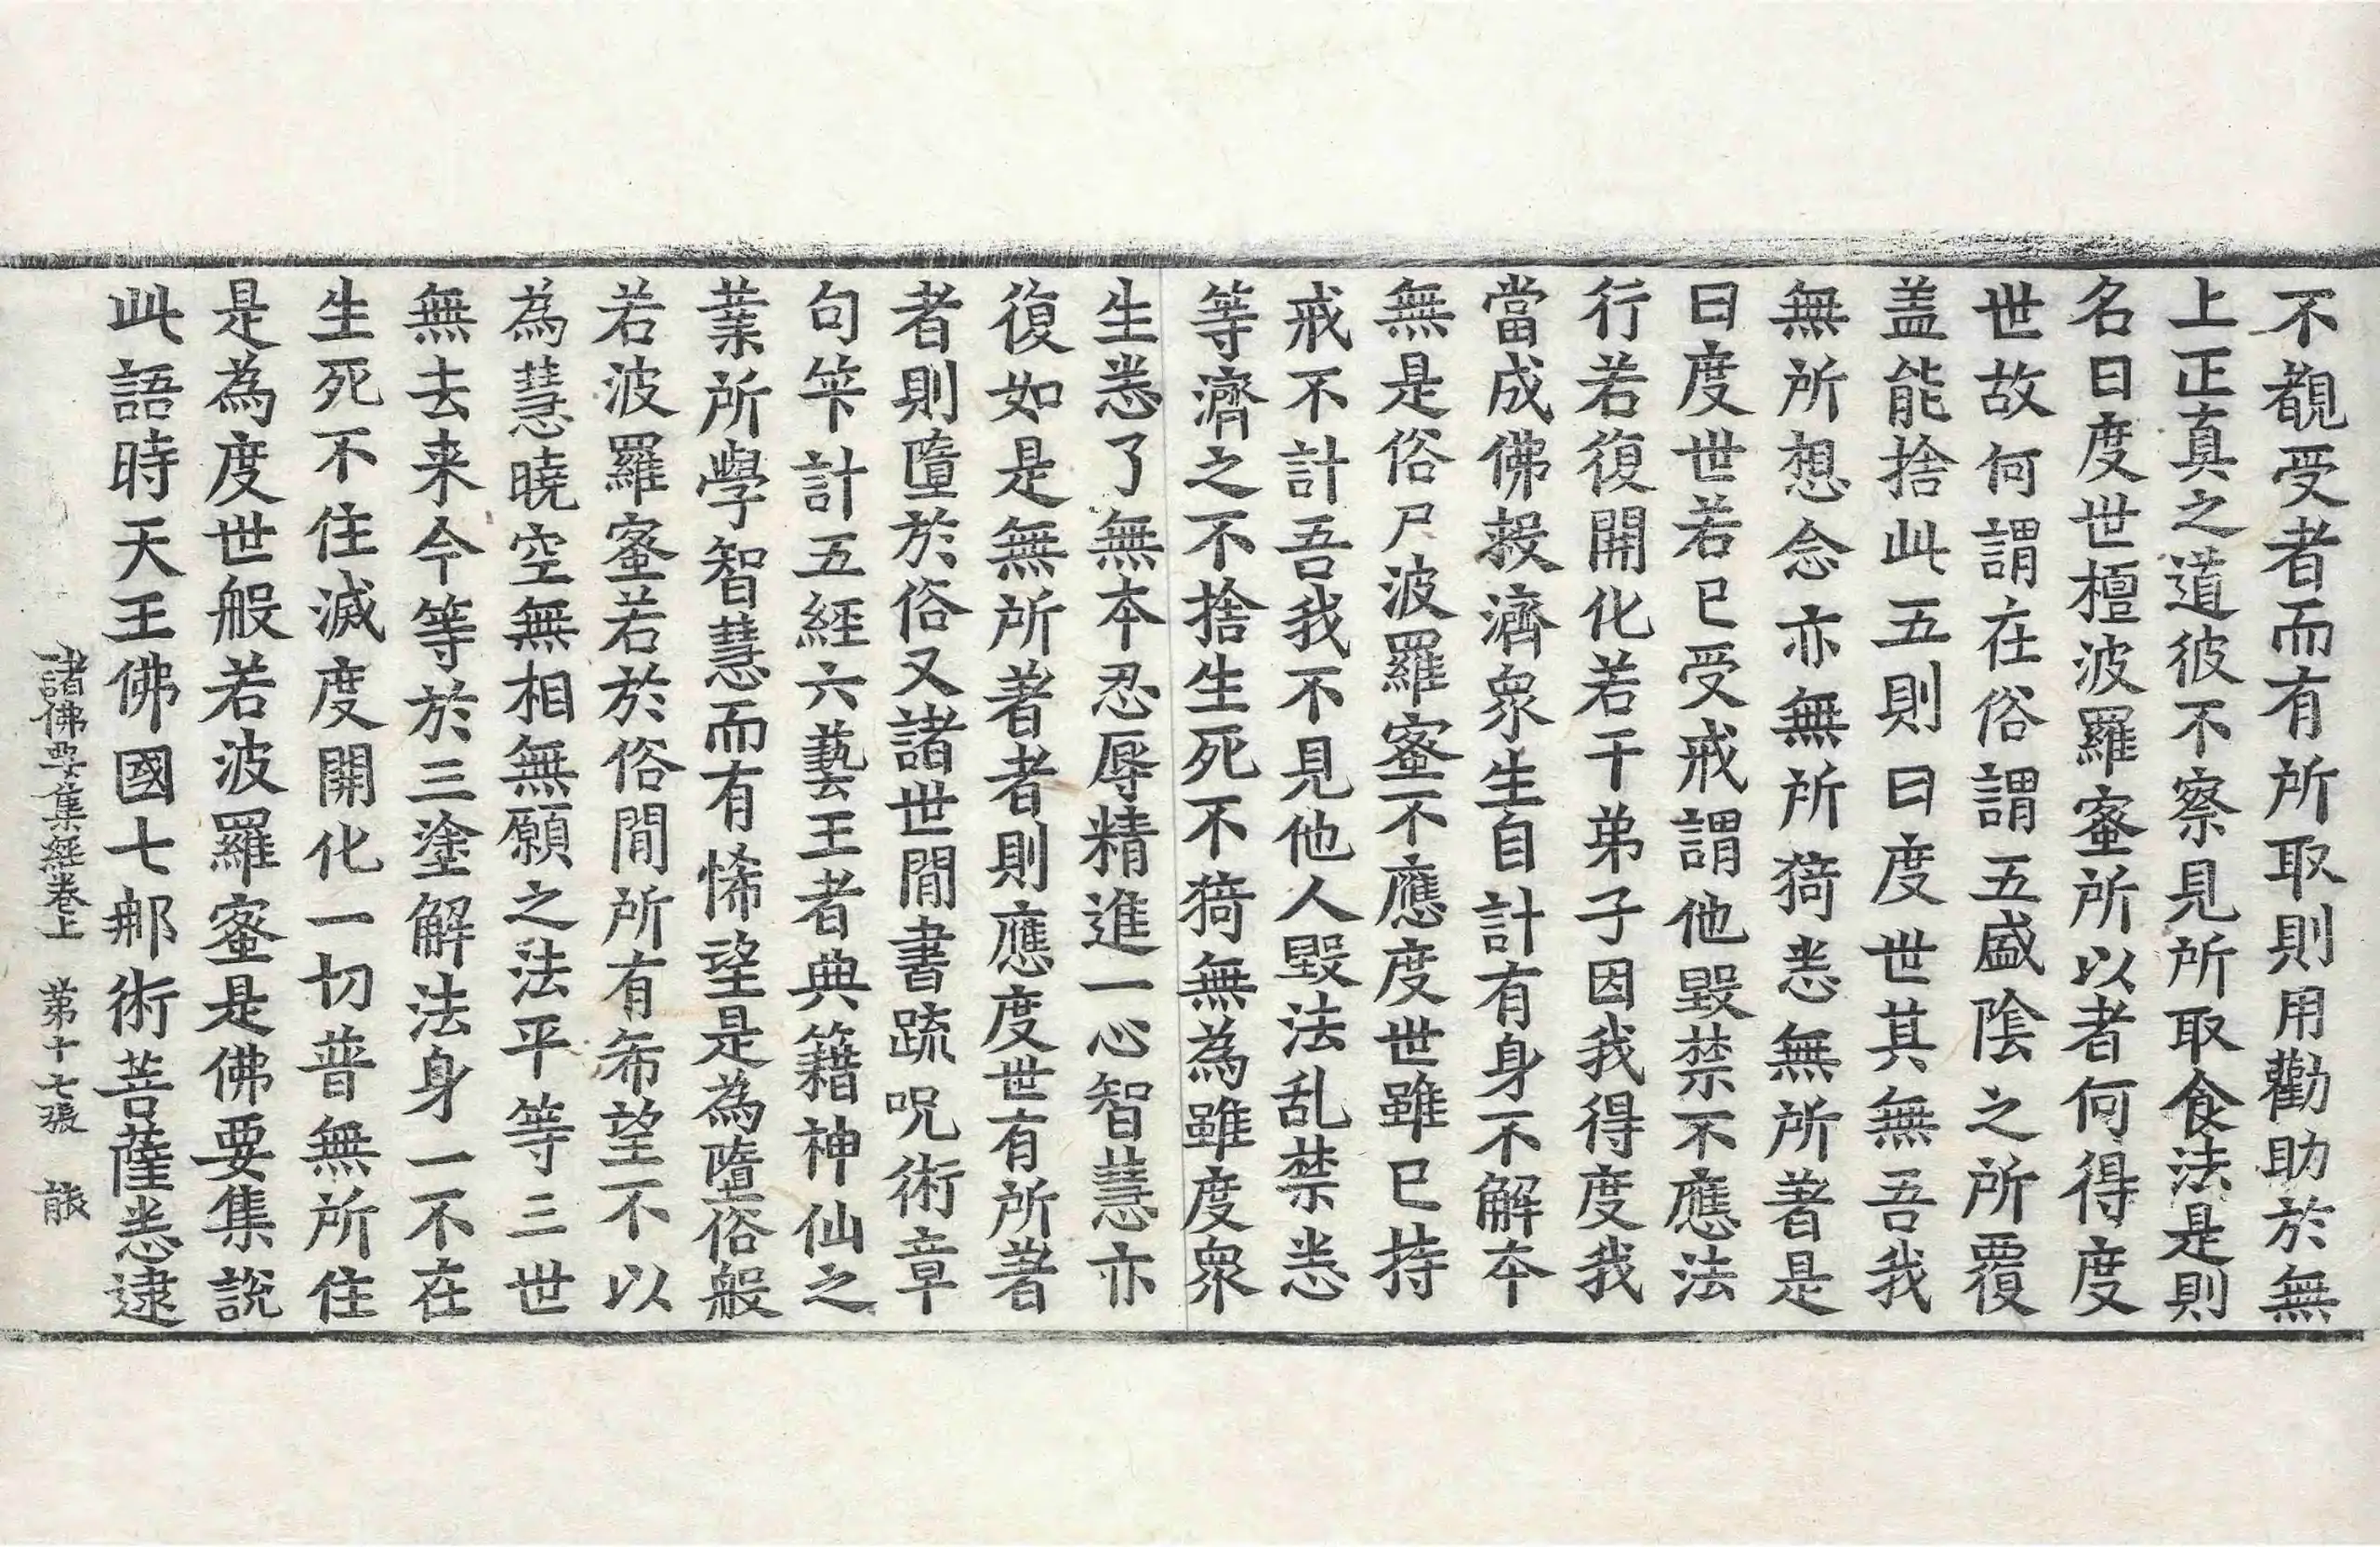 不覩受者而有所取則用勸助於無
上正真之道彼不察見所取食法是則
名曰度世檀波羅蜜所以者何得度
世故何謂在俗謂五盛陰之所覆
盖能捨此五則曰度世其無吾我
無所想念亦無所猗悉無所著是
曰度世若已受戒謂他毀禁不應法
行若復開化若干弟子因我得度我
當成佛救濟衆生自計有身不解本
無是俗尸波羅蜜不應度世雖已持
戒不計吾我不見他人毀法乱禁悉
等濟之不捨生死不猗無為雖度衆
生悉了無本忍辱精進一心智慧亦
復如是無所著者則應度世有所著
者則墮於俗又諸世間書疏呪術章
句筭計五經六藝王者典籍神仙之
業所學智慧而有悕望是為墮俗般
若波羅蜜若於俗間所有希望不以
為慧曉空無相無願之法平等三世
無去来今等於三塗解法身一不在
生死不住滅度開化一切普無所住
是為度世般若波羅蜜是佛要集說
此語時天王佛國七那術菩薩悉逮
諸佛要集經卷上 第十七張